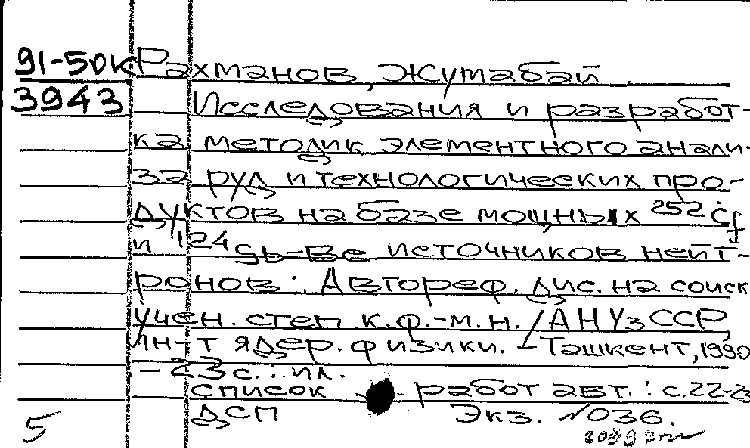 91-50к Рахманов, Жумабай
3943 Исследования и разработ-
ка методик элементного анали-
за руд и технологических про-
дуктов на базе мощных 252Cf
и 124Sb-Be источников нейт-
ронов : Автореф. дис. на соиск
учен. степ к.ф.-м.н. / АН УзССР,
Ин-т ядер. физики. - Ташкент, 1990
- 23 с. : ил.
список работ авт. : с. 22-23
ДСП Экз. N036.
5